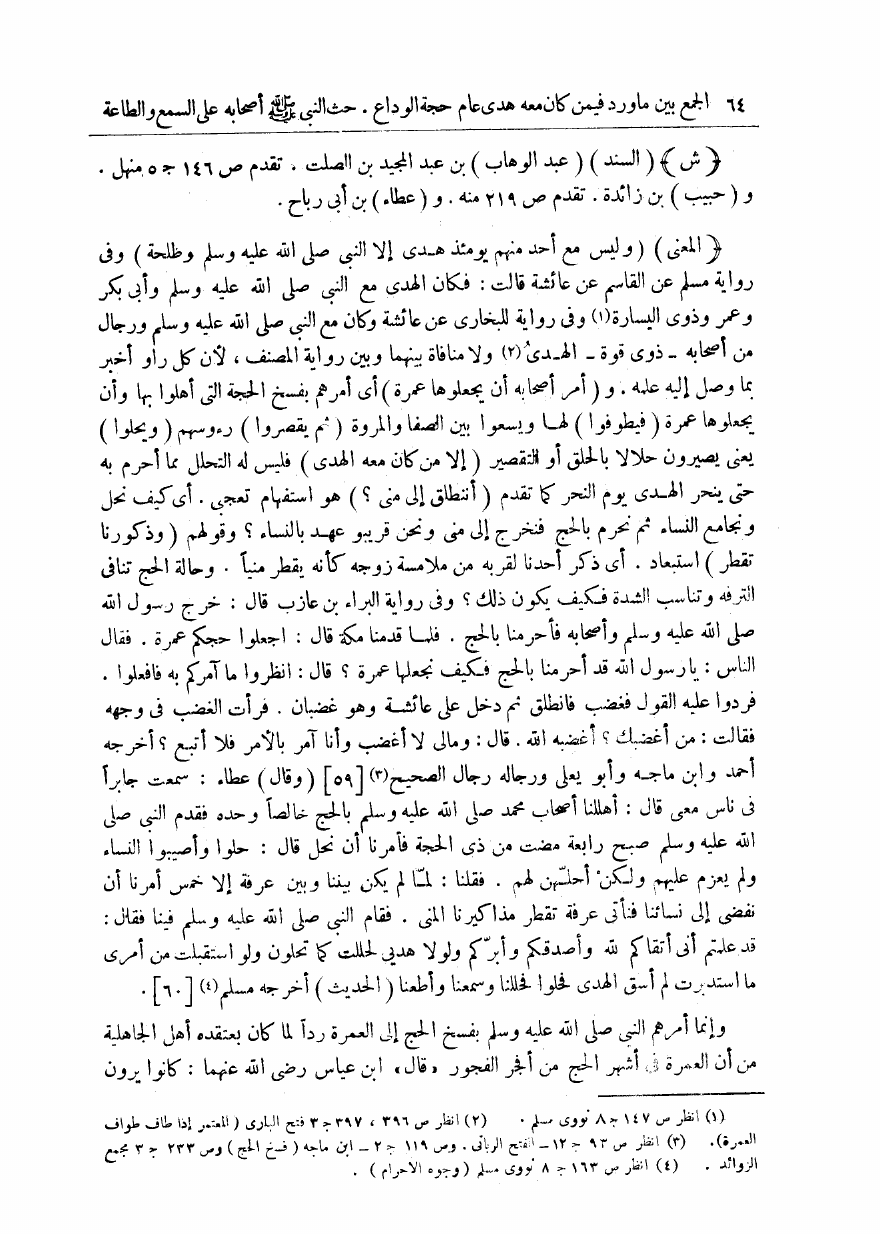 ٦٤ الجمع بين ماورد فيمن كان معه هدى عام حجة الوداع . حث النبي ﷺ أصحابه على السمع والطاعة
﴿ش﴾ ( السند ) ( عبد الوهاب ) بن عبد المجيد بن الصلت . تقدم ص ١٤٦ ج ٥ منهل .
و ( حبيب ) بن زائدة . تقدم ص ٢١٩ منه . و ( عطاء ) بن أبى رباح .
﴿ المعنى ) ( وليس مع أحد منهم يومئذ هـدى إلا النبي صلى الله عليه وسلم وطلحة ) وفى
رواية مسلم عن القاسم عن عائشة قالت : فكان الهدى مع النبي صلى الله عليه وسلم وأبى بكر
وعمر وذوى اليسارة(١) وفى رواية للبخارى عن عائشة وكان مع النبي صلى الله عليه وسلم ورجال
من أصحابه - ذوى قوة - الهـدىُ(٢) ولا منافاة بينهما وبين رواية المصنف ، لأن كل راو أخبر
بما وصل إليه علمه . و ( أمر أصحابه أن يجعلوها عمرة ) أى أمرهم بفسخ الحجة التى أهلوا بها وأن
يجعلوها عمرة ( فيطوفوا ) لهـا ويسعوا بين الصفا والمروة ( ثم يقصروا ) رءوسهم ( ويحلوا )
يعنى يصيرون حلالا بالحلق أو التقصير ( إلا من كان معه الهدى ) فليس له التحلل مما أحرم به
حتى ينحر الهـدى يوم النحر كما تقدم ( أننطلق إلى منى ؟ ) هو استفهام تعجى . أى كيف نحل
ونجامع النساء ثم نحرم بالحج فنخرج إلى منى ونحن قريبو عهـد بالنساء ؟ وقولهم ( وذكورنا
تقطر ) استبعاد . أى ذكر أحدنا لقربه من ملامسة زوجه كأنه يقطر منياً . وحالة الحج تنافى
الترفه وتناسب الشدة فكيف يكون ذلك ؟ وفى رواية البراء بن عازب قال : خرج رسول الله
صلى الله عليه وسلم وأصحابه فأحرمنا بالحج . فلمـا قدمنا مكة قال : اجعلوا حجكم عمرة . فقال
الناس : يارسول الله قد أحرمنا بالحج فكيف نجعلها عمرة ؟ قال : انظروا ما آمركم به فافعلوا .
فردوا عليه القول فغضب فانطلق ثم دخل على عائشـة وهو غضبان . فرأت الغضب فى وجهه
فقالت : من أغضبك ؟ أغضبه الله . قال : ومالى لا أغضب وأنا آمر بالأمر فلا أتبع ؟ أخرجه
أحمد وابن ماجـه وأبو يعلى ورجاله رجال الصحيح(٣) [٥٩] ( وقال ) عطاء : سمعت جابراً
فى ناس معى قال : أهللنا أصحاب محمد صلى الله عليه وسلم بالحج خالصاً وحده فقدم النبي صلى
الله عليه وسلم صبح رابعة مضت من ذى الحجة فأمرنا أن نحل قال : حلوا وأصيبوا النساء
ولم يعزم عليهم ولكنْ أحلّهن لهم . فقلنا : لمّا لم يكن بيننا وبين عرفة إلا خمس أمرنا أن
نفضى إلى نسائنا فنأتى عرفة تقطر مذاكيرنا المنى . فقام النبي صلى الله عليه وسلم فينا فقال :
قد علمتم أنى أتقاكم لله وأصدقكم وأبرّكم ولولا هديى لحللت كما تحلون ولو استقبلت من أمرى
ما استدبرت لم أسق الهدى فحلوا فحللنا وسمعنا وأطعنا ( الحديث ) أخرجه مسلم(٤) [٦٠] .
وإنما أمرهم النبي صلى الله عليه وسلم بفسخ الحج إلى العمرة رداً لما كان يعتقده أهل الجاهلية
من أن العمرة فى أشهر الحج من أفجر الفجور «قال» ابن عباس رضى الله عنهما : كانوا يرون
(١) انظر ص ١٤٧ ج ٨ نووى مسلم . (٢) انظر ص ٣٩٦ ، ٣٩٧ ج ٣ فتح البارى ( المعتمر إذا طاف طواف
العمرة). (٣) انظر ص ٩٣ ج ١٢ - الفتح الربانى . وص ١١٩ ج ٢ - ابن ماجه ( فسخ الحج ) وص ٢٣٣ ج ٣ مجمع
الزوائد . (٤) انظر ص ١٦٣ ج ٨ نووى مسلم ( وجوه الاحرام ) .